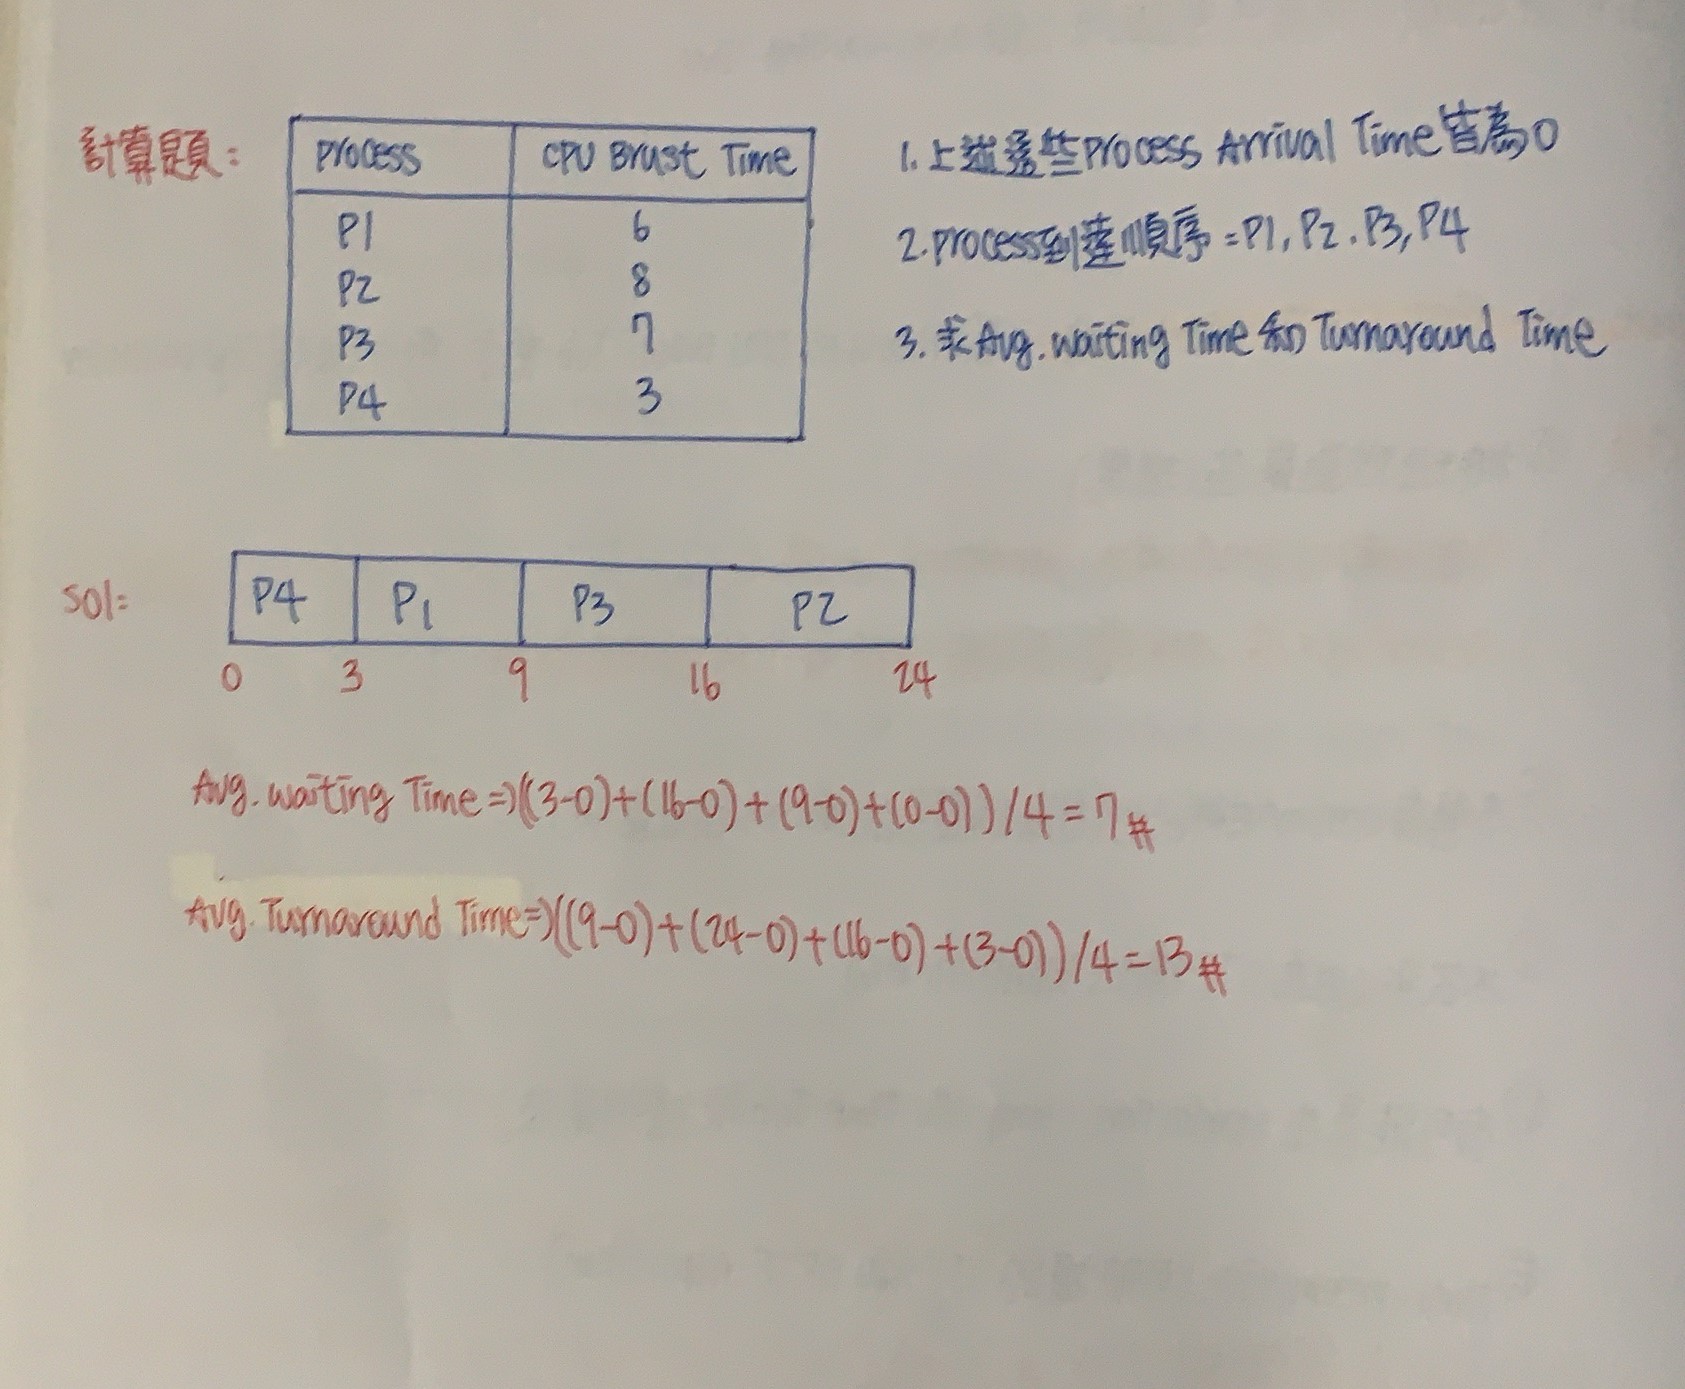 計算題:
Process CPU Brust Time
P1 6
P2 8
P3 7
P4 3
1.上述這些Process Arrival Time皆為0
2.Process到達順序=P1,P2.P3,P4
3.求Avg.waiting Time和Turnaround Time
sol=
P4 P1 P3 P2
0 3 9 16 24
Avg.waiting Time=>((3-0)+(16-0)+(9-0)+(0-0))/4=7#
Avg.Turnaround Time=>((9-0)+(24-0)+(16-0)+(3-0))/4=13#